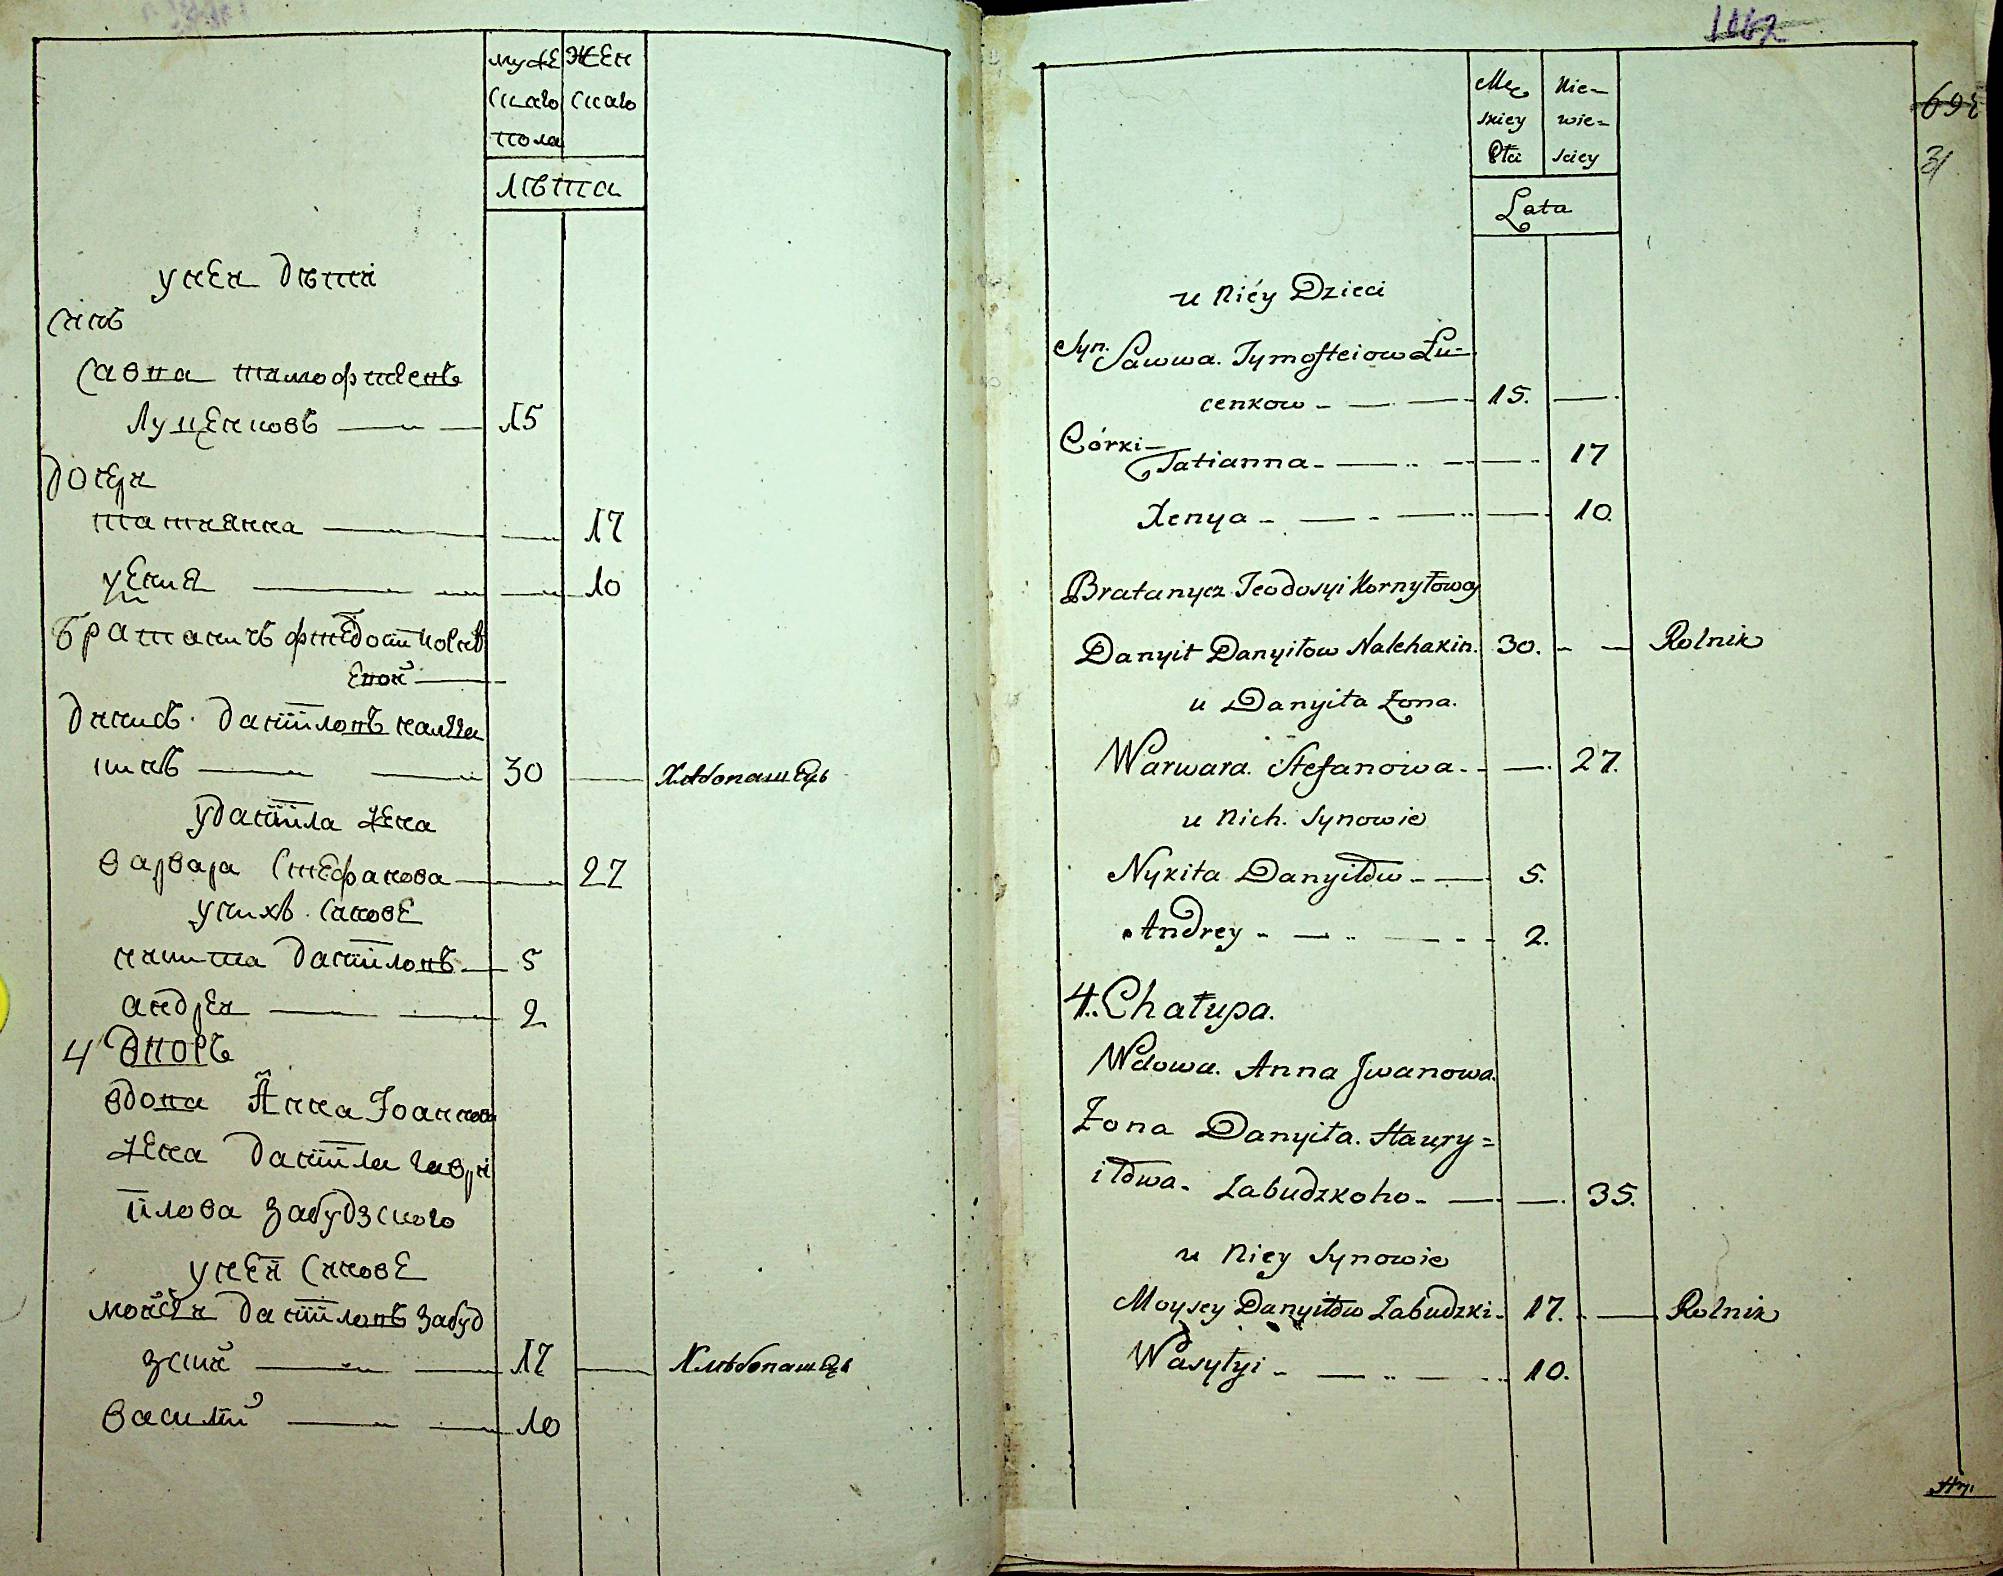 мужЕ ЖЕн
скаго скаго
пола
лѣта
унея дѣти
синъ
Савва тимофтѣевъ
Луценковъ — 15
дочеры
татиянна — 17
ѯения — 10
братаничъ фтедосїй корнил
евой
данило данїиловъ налѣга
кинъ — 30 — Хлѣбопашецъ
у данїила жена
варвара Стефанова — 27
у нихъ синове
никита данїиловъ — 5
андрей — 2
4 дворъ
вдова Анна Іоаннова
жена данїила гаври
їлова забудзского
у ней синове
мойсей данїиловъ забуд
зкий — 17 — Хлѣбопашецъ
василїй — 10
1162
695
31
Męs Nie-
skiey wie-
Płci sciey
Lata
u Niéy Dzieci
Syn. Sawwa. Tymofteiow Łu-
cenkow - — 15. —
Córki— Tatianna - — 17
Xenya - — 10.
Bratanycz Teodosyi Kornyłowoy
Danyił Danyiłow Nalehakin. 30. - — Rolnik
u Danyiła Żona.
Warwara. Stefanowa - — 27.
u Nich. Synowie
Nykita Danyiłów - — 5.
Andrey - — 2.
4. Chałupa.
Wdowa. Anna Jwanowa.
Żona Danyiła. Hawry=
iłówa. Zabudzkoho - — 35.
u Niey Synowie
Moysey Danyiłów Zabudzki - 17. — Rolnik
Wasyłyi - — 10.